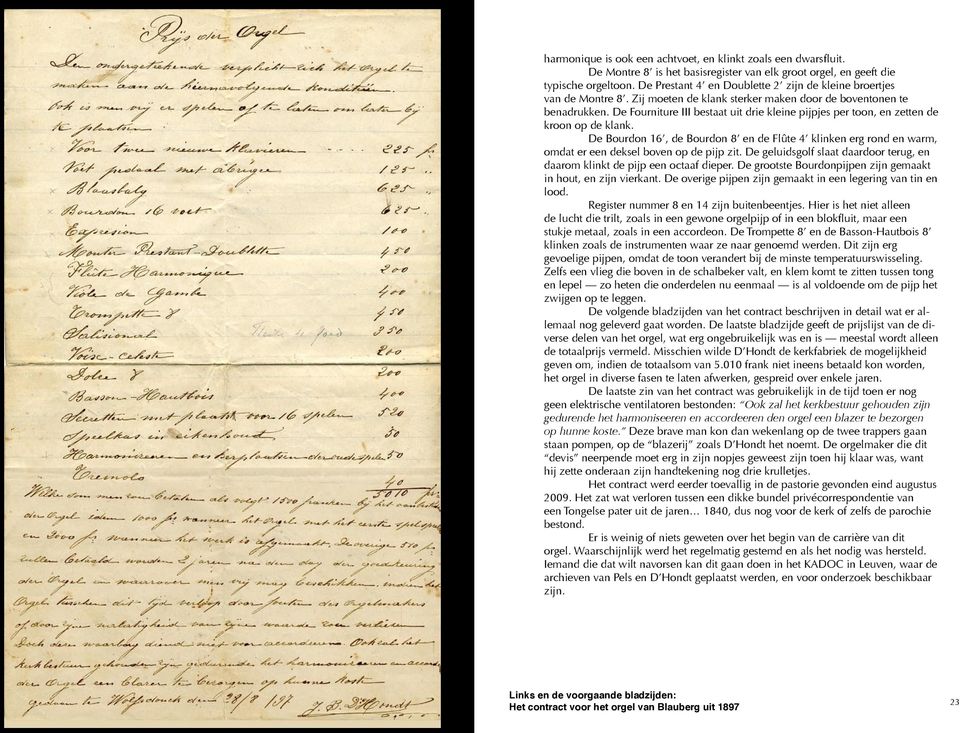 Prijs der Orgel
Den ondergetekende verplicht zich het Orgel te
maken aan de hiernavolgende konditiën.
Ook is men vrij er spelen of te laten om later bij
te plaatsen
Voor twee nieuwe klavieren .... 225 fr
Voit pedaal met abregee 125 "
Blaasbalg 625 "
Bourdon 16 voet 625 "
Expresion 100
Monter Prestant-Doublette 450
Flûte Harmonique 200
Viole de Gambe 400
Trompette 8 450
Salisional 350
Voix-celeste 200
Dolce 8 200
Basson-Hautbois 400
Secretten met plaats voor 16 spelen 520
Speelkas in eikenhoud 50
Harmoniseren en herplaatsen der oude spelen 50
Tremolo 40
5010 fr
Welke som men zou betalen als volgt 1500 franken bij het
der Orgel idem 1000 fr wanneer het Orgel met het eerste spel
en 2000 fr wanneer het werk is afgemaakt. De overige 510 fr
zullen betaald worden 2 jaren na den dag der goedkeuring
der Orgel en waarover men vrij mag beschikken, indien het
Orgel tusschen dit tijd verloop door fouten des Orgelmakers
of door zijn nalatigheid van zijne waarde zou verliezen
Doch deze waarborg diend niet voor accordeeren. Ook zal het
kerkbestuur gehouden zijn gedurende het harmoniseeren en
der Orgel een blazer te bezorgen op hunne koste
gedaan te Wolfsdonck den 28/8/97 J. B. D'Hondt
harmonique is ook een achtvoet, en klinkt zoals een dwarsfluit.
De Montre 8' is het basisregister van elk groot orgel, en geeft die
typische orgeltoon. De Prestant 4' en Doublette 2' zijn de kleine broertjes
van de Montre 8'. Zij moeten de klank sterker maken door de boventonen te
benadrukken. De Fourniture III bestaat uit drie kleine pijpjes per toon, en zetten de
kroon op de klank.
De Bourdon 16', de Bourdon 8' en de Flûte 4' klinken erg rond en warm,
omdat er een deksel boven op de pijp zit. De geluidsgolf slaat daardoor terug, en
daarom klinkt de pijp een octaaf dieper. De grootste Bourdonpijpen zijn gemaakt
in hout, en zijn vierkant. De overige pijpen zijn gemaakt in een legering van tin en
lood.
Register nummer 8 en 14 zijn buitenbeentjes. Hier is het niet alleen
de lucht die trilt, zoals in een gewone orgelpijp of in een blokfluit, maar een
stukje metaal, zoals in een accordeon. De Trompette 8' en de Basson-Hautbois 8'
klinken zoals de instrumenten waar ze naar genoemd werden. Dit zijn erg
gevoelige pijpen, omdat de toon verandert bij de minste temperatuurswisseling.
Zelfs een vlieg die boven in de schalbeker valt, en klem komt te zitten tussen tong
en lepel — zo heten die onderdelen nu eenmaal — is al voldoende om de pijp het
zwijgen op te leggen.
De volgende bladzijden van het contract beschrijven in detail wat er al-
lemaal nog geleverd gaat worden. De laatste bladzijde geeft de prijslijst van de di-
verse delen van het orgel, wat erg ongebruikelijk was en is — meestal wordt alleen
de totaalprijs vermeld. Misschien wilde D'Hondt de kerkfabriek de mogelijkheid
geven om, indien de totaalsom van 5.010 frank niet ineens betaald kon worden,
het orgel in diverse fasen te laten afwerken, gespreid over enkele jaren.
De laatste zin van het contract was gebruikelijk in de tijd toen er nog
geen elektrische ventilatoren bestonden: "Ook zal het kerkbestuur gehouden zijn
gedurende het harmoniseeren en accordeeren den orgel een blazer te bezorgen
op hunne koste." Deze brave man kon dan wekenlang op de twee trappers gaan
staan pompen, op de "blazerij" zoals D'Hondt het noemt. De orgelmaker die dit
"devis" neerpende moet erg in zijn nopjes geweest zijn toen hij klaar was, want
hij zette onderaan zijn handtekening nog drie krulletjes.
Het contract werd eerder toevallig in de pastorie gevonden eind augustus
2009. Het zat wat verloren tussen een dikke bundel privécorrespondentie van
een Tongelse pater uit de jaren… 1840, dus nog voor de kerk of zelfs de parochie
bestond.
Er is weinig of niets geweten over het begin van de carrière van dit
orgel. Waarschijnlijk werd het regelmatig gestemd en als het nodig was hersteld.
Iemand die dat wilt navorsen kan dit gaan doen in het KADOC in Leuven, waar de
archieven van Pels en D'Hondt geplaatst werden, en voor onderzoek beschikbaar
zijn.
Links en de voorgaande bladzijden:
Het contract voor het orgel van Blauberg uit 1897
23